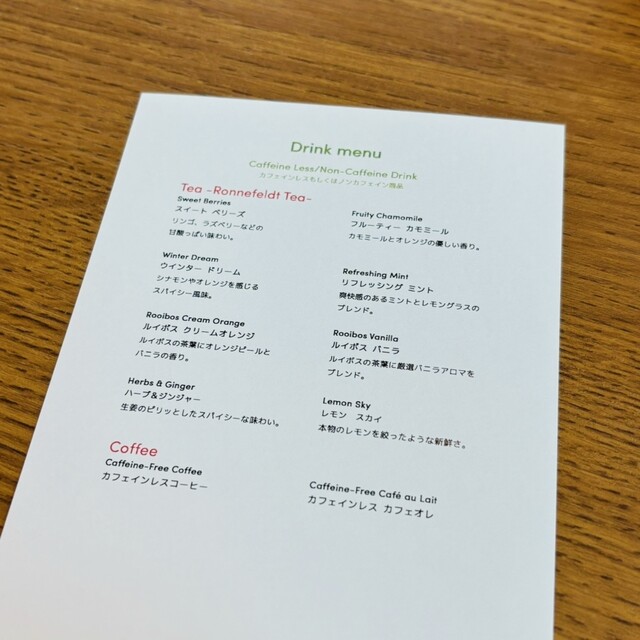 Drink menu
Caffeine Less/Non-Caffeine Drink
カフェインレスもしくはノンカフェイン商品
Tea -Ronnefeldt Tea-
Sweet Berries
スイート ベリーズ
リンゴ、ラズベリーなどの
甘酸っぱい味わい。
Fruity Chamomile
フルーティー カモミール
カモミールとオレンジの優しい香り。
Winter Dream
ウインター ドリーム
シナモンやオレンジを感じる
スパイシー風味。
Refreshing Mint
リフレッシング ミント
爽快感のあるミントとレモングラスの
ブレンド。
Rooibos Cream Orange
ルイボス クリームオレンジ
ルイボスの茶葉にオレンジピールと
バニラの香り。
Rooibos Vanilla
ルイボス バニラ
ルイボスの茶葉に厳選バニラアロマを
ブレンド。
Herbs & Ginger
ハーブ&ジンジャー
生姜のピリッとしたスパイシーな味わい。
Lemon Sky
レモン スカイ
本物のレモンを絞ったような新鮮さ。
Coffee
Caffeine-Free Coffee
カフェインレスコーヒー
Caffeine-Free Café au Lait
カフェインレス カフェオレ